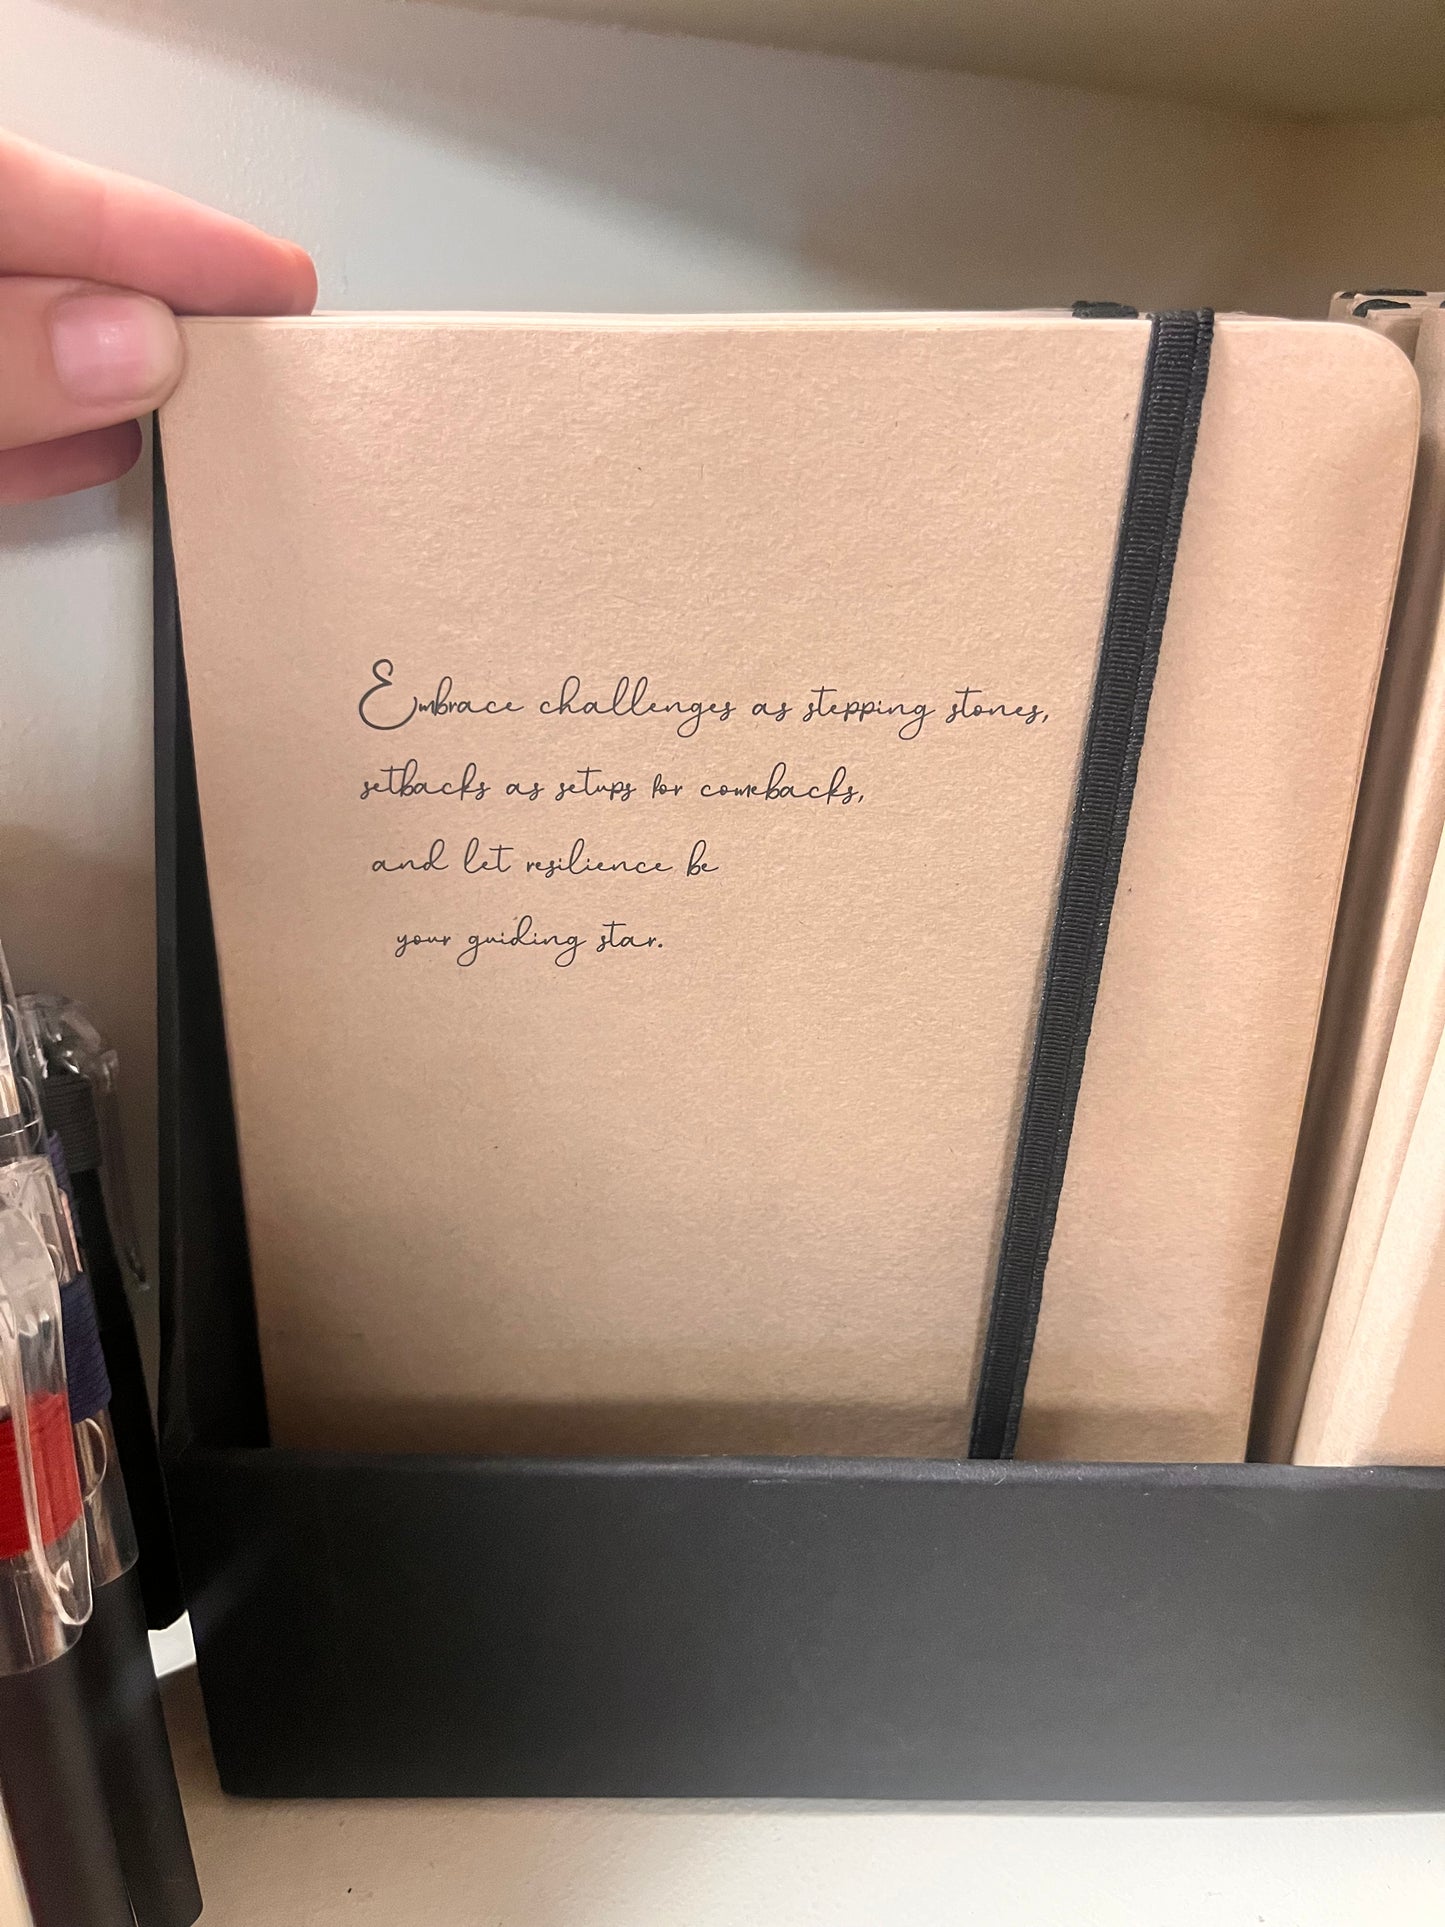 Embrace challenges as stepping stones,
setbacks as setups for comebacks,
and let resilience be
your guiding star.